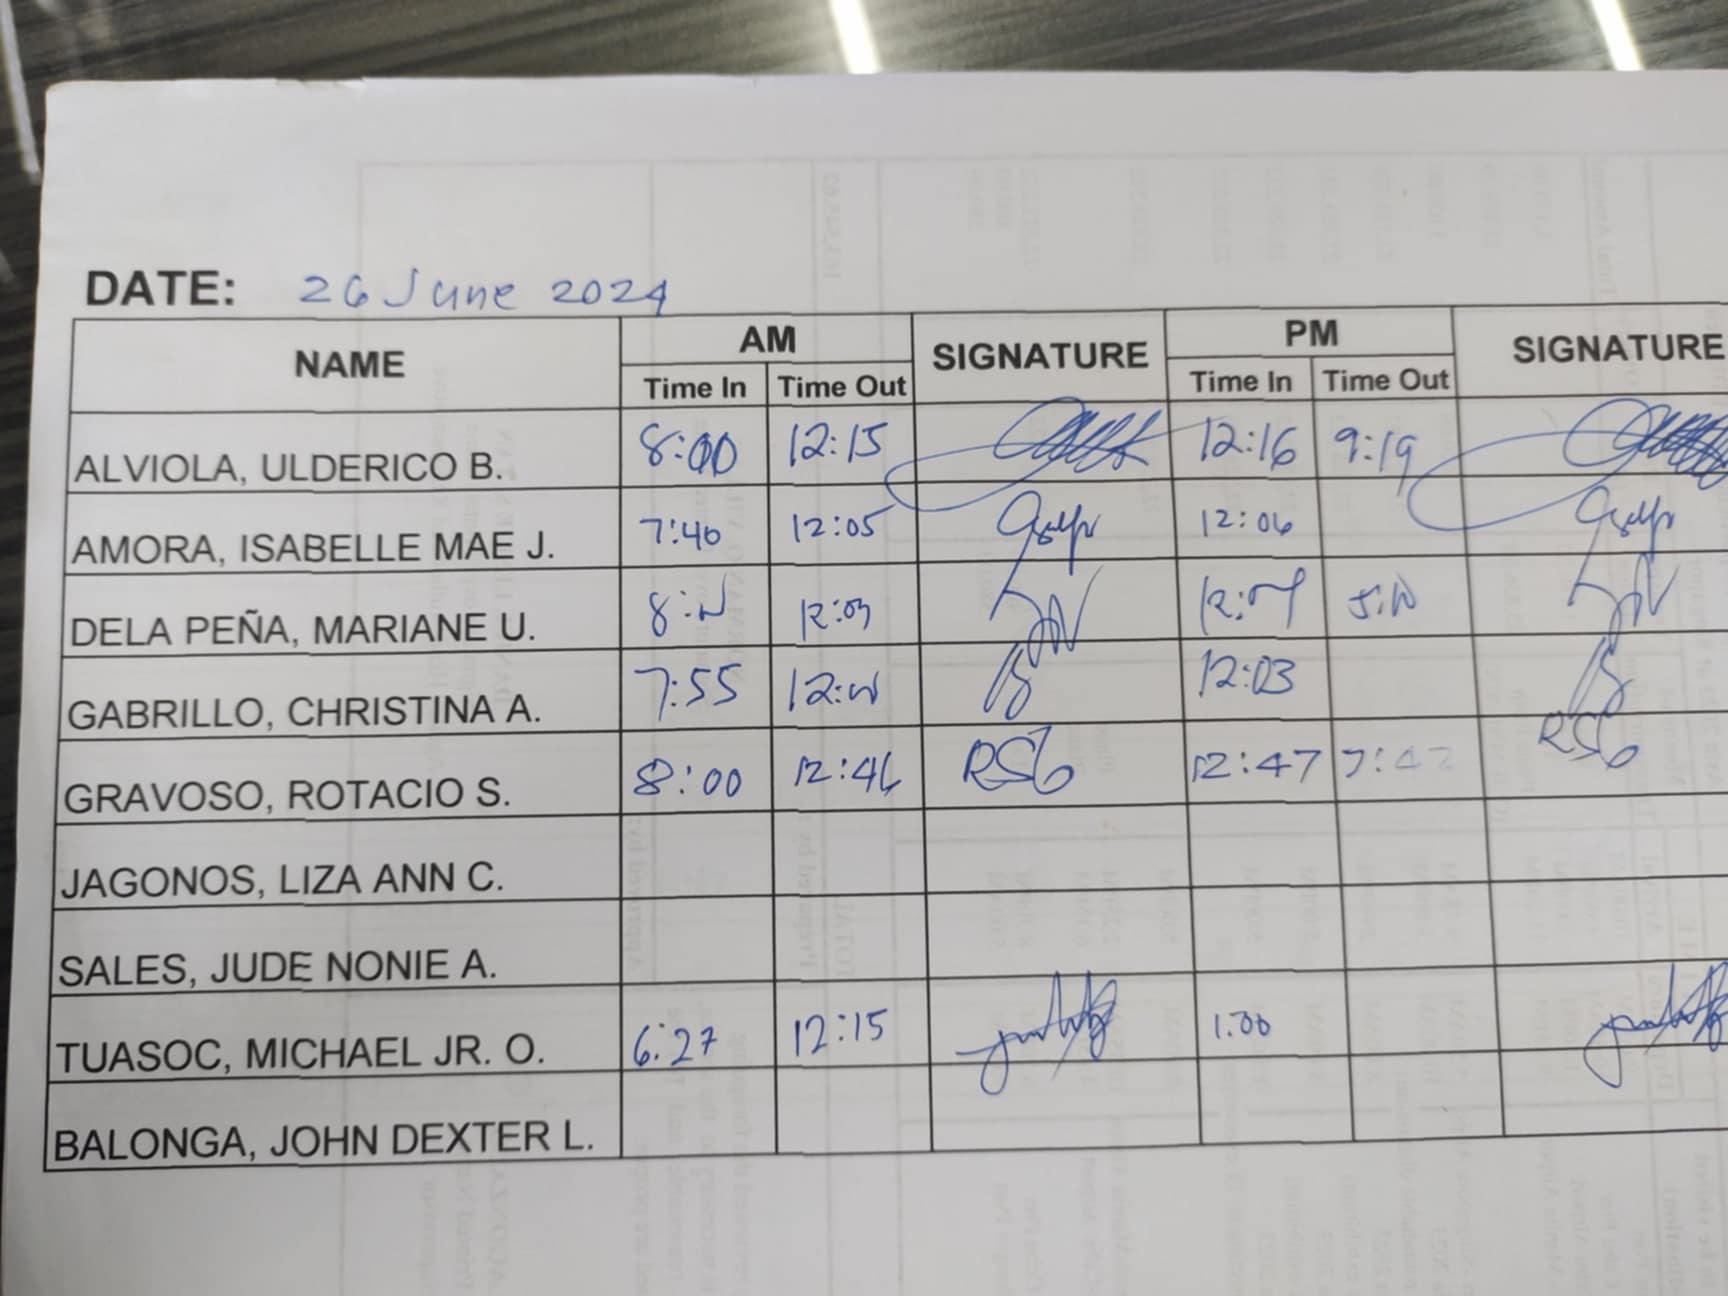 DATE: 26 June 2024
NAME AM SIGNATURE PM SIGNATURE
Time In Time Out Time In Time Out
ALVIOLA, ULDERICO B. 8:00 12:15 12:16 9:19
AMORA, ISABELLE MAE J. 7:40 12:05 12:06
DELA PEÑA, MARIANE U. 12:03
GABRILLO, CHRISTINA A. 7:55 12:03
GRAVOSO, ROTACIO S. 8:00 12:46 RSG 12:47 7:47 RSG
JAGONOS, LIZA ANN C.
SALES, JUDE NONIE A.
TUASOC, MICHAEL JR. O. 6:27 12:15 1:00
BALONGA, JOHN DEXTER L.